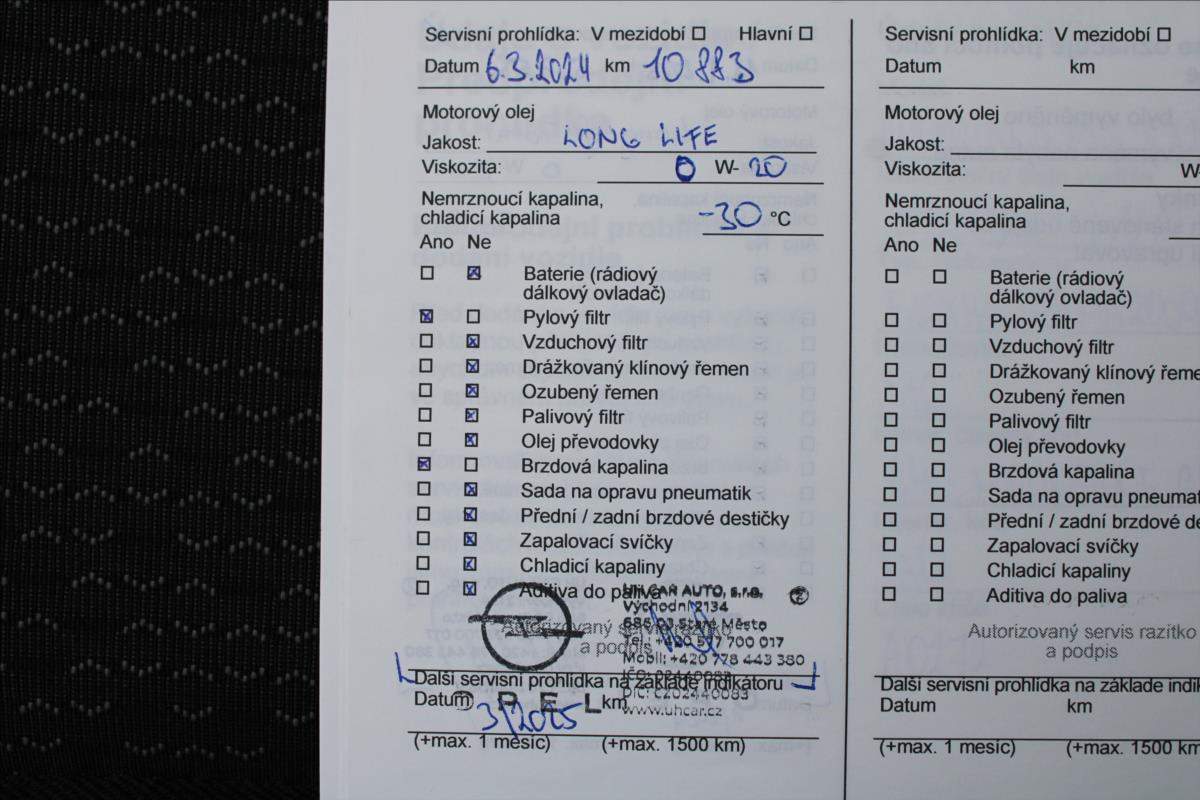 Servisní prohlídka: V mezidobí ☐ Hlavní ☐
Datum 6.3.2024 km 10 883
Motorový olej
Jakost: LONG LIFE
Viskozita: 0 W- 20
Nemrznoucí kapalina,
chladicí kapalina -30 °C
Ano Ne
☐ ☒ Baterie (rádiový
dálkový ovladač)
☒ ☐ Pylový filtr
☐ ☒ Vzduchový filtr
☐ ☒ Drážkovaný klínový řemen
☐ ☒ Ozubený řemen
☐ ☒ Palivový filtr
☐ ☒ Olej převodovky
☒ ☐ Brzdová kapalina
☐ ☒ Sada na opravu pneumatik
☐ ☒ Přední / zadní brzdové destičky
☐ ☒ Zapalovací svíčky
☐ ☒ Chladicí kapaliny
☐ ☒ Aditiva do paliva
Autorizovaný servis razítko
a podpis
UH CAR AUTO, s.r.o.
Východní 2134
686 03 Staré Město
Tel.: +420 577 700 017
Mobil: +420 778 443 380
IČO: 02440083
DIČ: CZ02440083
www.uhcar.cz
OPEL
Další servisní prohlídka na základe indikátoru
Datum 3/2025 km
(+max. 1 mesíc) (+max. 1500 km)
Servisní prohlídka: V mezidobí ☐
Datum km
Motorový olej
Jakost:
Viskozita: W-
Nemrznoucí kapalina,
chladicí kapalina
Ano Ne
☐ ☐ Baterie (rádiový
dálkový ovladač)
☐ ☐ Pylový filtr
☐ ☐ Vzduchový filtr
☐ ☐ Drážkovaný klínový řeme
☐ ☐ Ozubený řemen
☐ ☐ Palivový filtr
☐ ☐ Olej převodovky
☐ ☐ Brzdová kapalina
☐ ☐ Sada na opravu pneumat
☐ ☐ Přední / zadní brzdové de
☐ ☐ Zapalovací svíčky
☐ ☐ Chladicí kapaliny
☐ ☐ Aditiva do paliva
Autorizovaný servis razítko
a podpis
Další servisní prohlídka na základe indik
Datum km
(+max. 1 mesíc) (+max. 1500 km